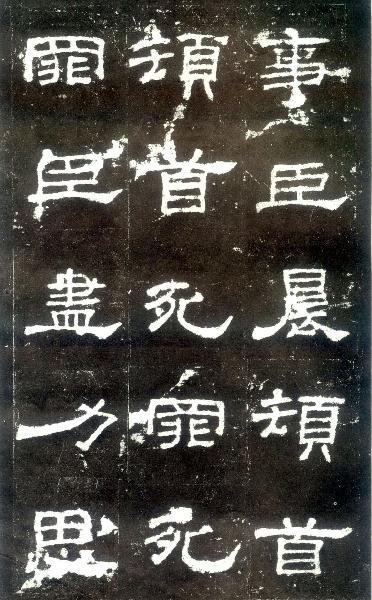 事臣晨頓首
頓首死罪死
罪臣盡力思